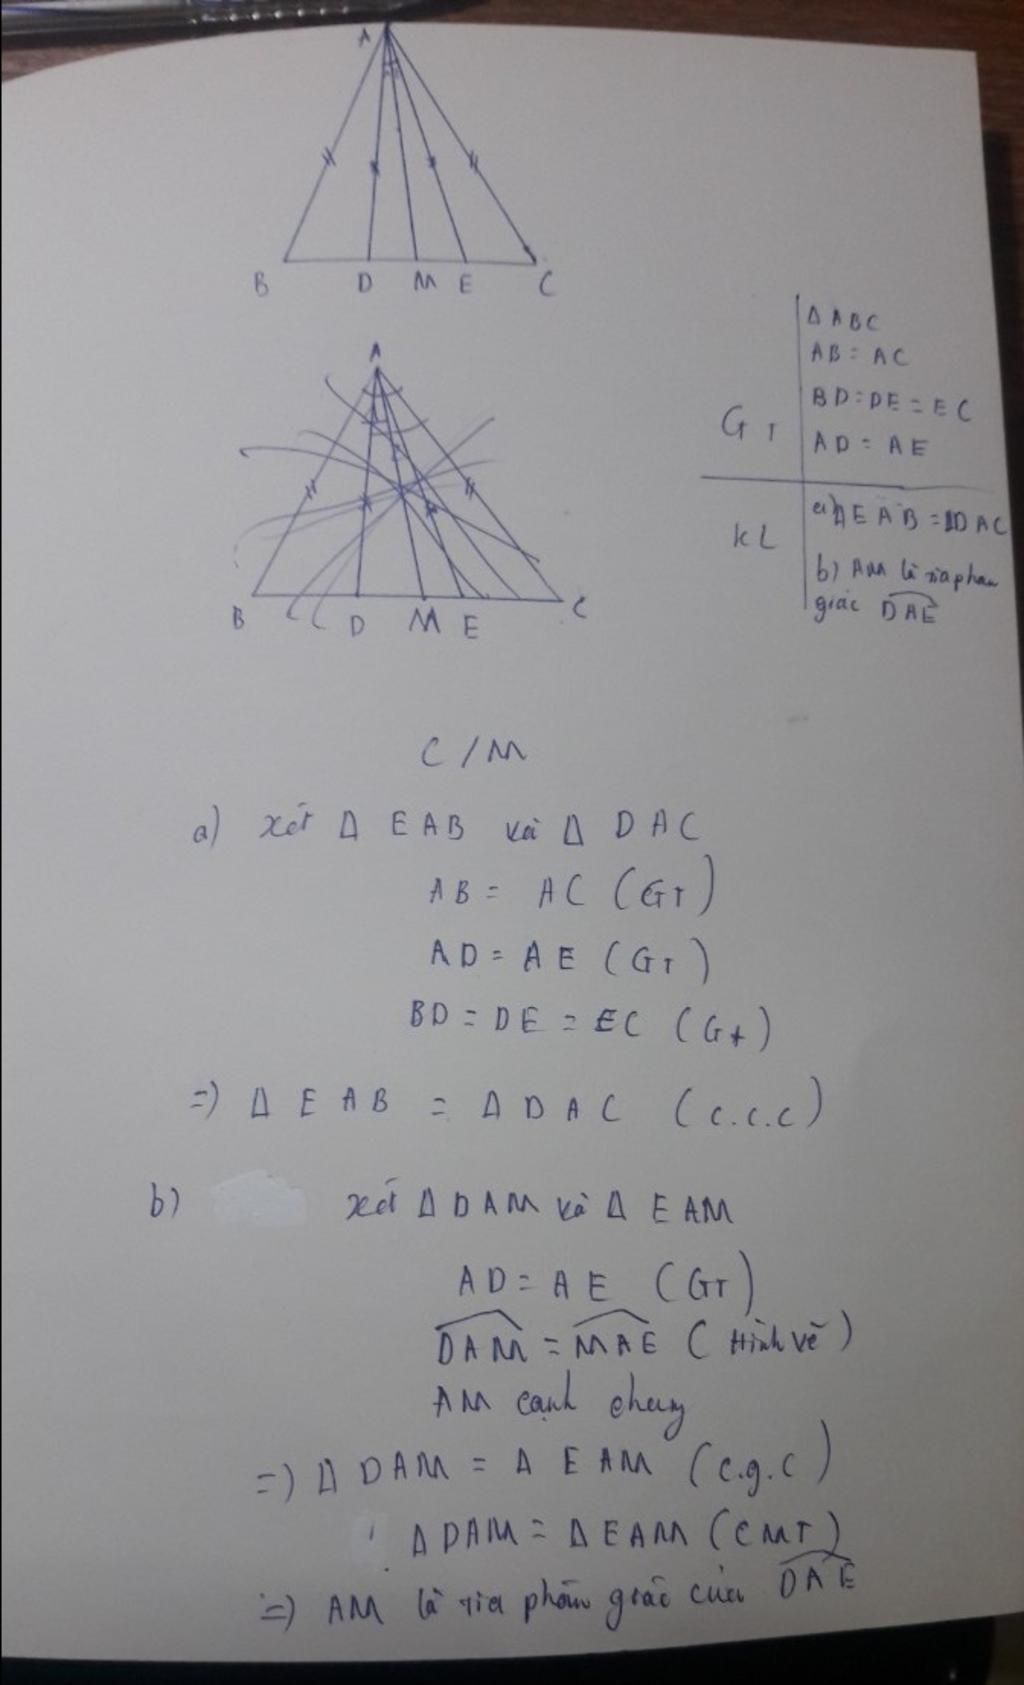 A
B D M E C
A
B D M E C
Δ ABC
AB = AC
BD = DE = EC
GT
AD = AE
a) Δ EAB = Δ DAC
KL
b) AM là tia phân
giác DAE
C/M
a) xét Δ EAB và Δ DAC
AB = AC (GT)
AD = AE (GT)
BD = DE = EC (Gt)
=) Δ EAB = Δ DAC (c.c.c)
b) xét Δ DAM và Δ EAM
AD = AE (GT)
DAM = MAE (Hình vẽ)
AM cạnh chung
=) Δ DAM = Δ EAM (c.g.c)
Δ DAM = Δ EAM (CMT)
=) AM là tia phân giác của DAE